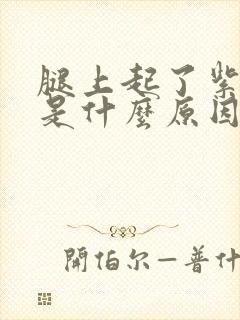 腿上起了紫
是什麼原因
開伯尔—普什